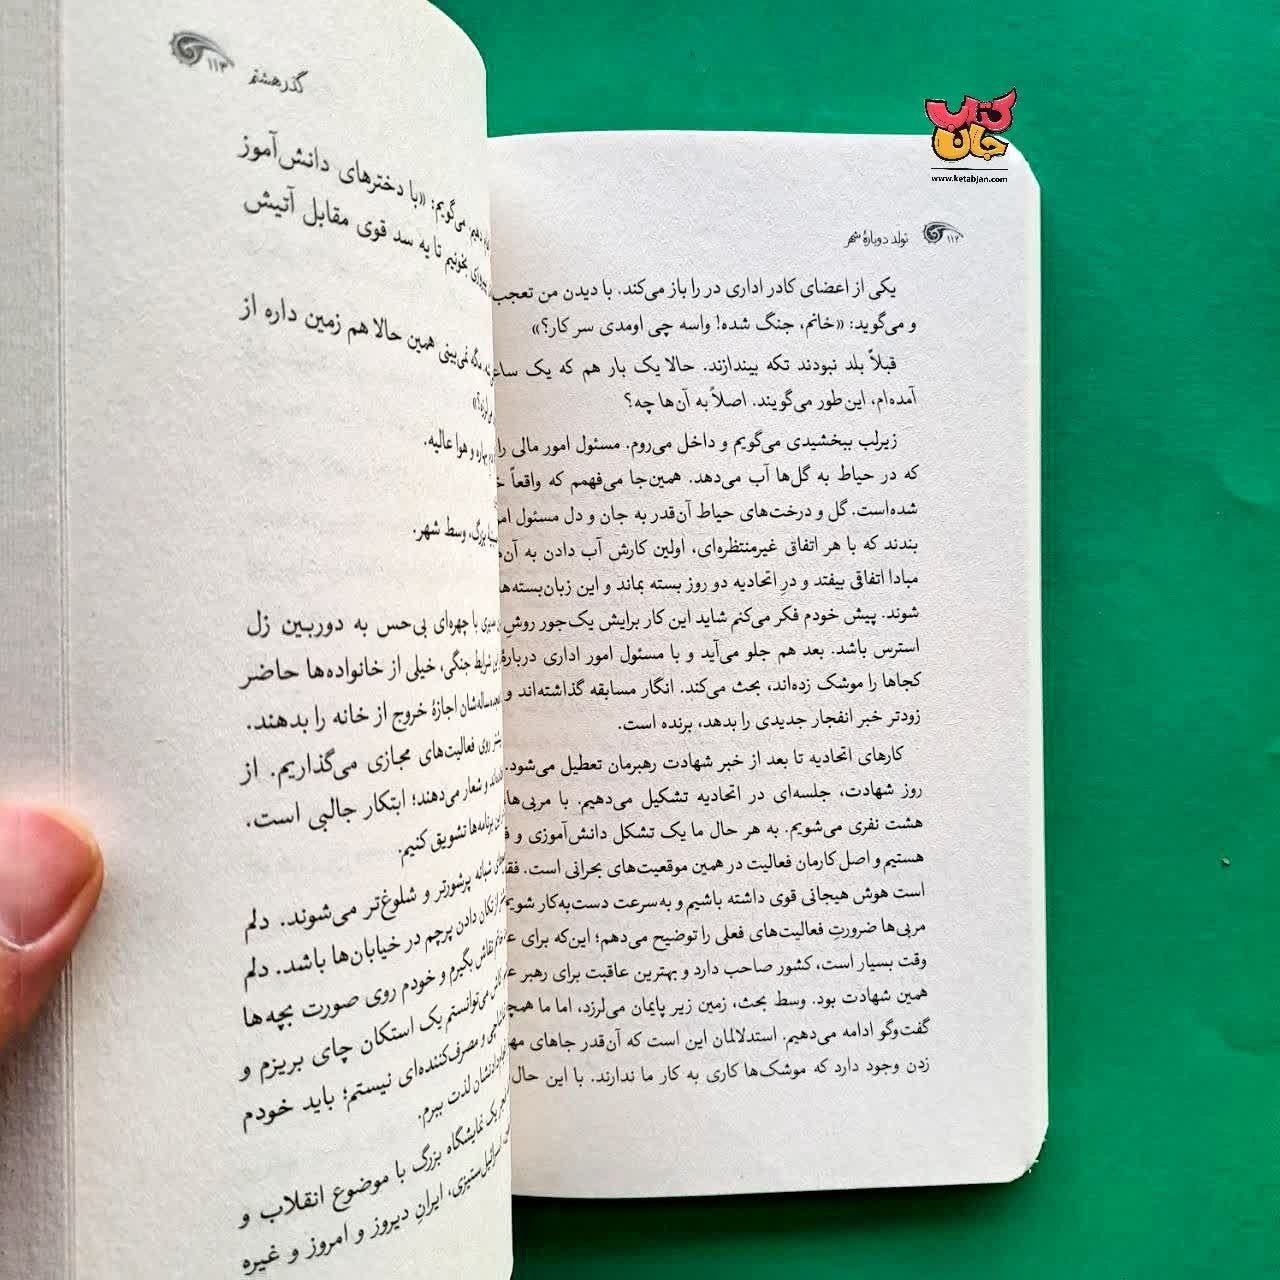 کتاب
جان
www.ketabjan.com
۱۱۲ تولد دوبارهٔ شهر
یکی از اعضای کادر اداری در را باز می‌کند. با دیدن من تعجب
و می‌گوید: «خانم، جنگ شده! واسه چی اومدی سر کار؟»
قبلاً بلد نبودند تکه بیندازند. حالا یک بار هم که یک
آمده‌ام، این‌طور می‌گویند. اصلاً به آن‌ها چه؟
زیرلب ببخشیدی می‌گویم و داخل می‌روم. مسئول امور مالی را
که در حیاط به گل‌ها آب می‌دهد. همین‌جا می‌فهمم که واقعاً
شده‌است. گل و درخت‌های حیاط آن‌قدر به جان و دل مسئول
بندند که با هر اتفاق غیرمنتظره‌ای، اولین کارش آب دادن به
مبادا اتفاقی بیفتد و درِ اتحادیه دو روز بسته بماند و این زبان‌بسته‌ها
شوند. پیش خودم فکر می‌کنم شاید این کار برایش یک‌جور روشِ
استرس باشد. بعد هم جلو می‌آید و با مسئول امور اداری
کجاها را موشک زده‌اند، بحث می‌کند. انگار مسابقه گذاشته‌اند و
زودتر خبر انفجار جدیدی را بدهد، برنده است.
کارهای اتحادیه تا بعد از خبر شهادت رهبرمان تعطیل می‌شود.
روز شهادت، جلسه‌ای در اتحادیه تشکیل می‌دهیم. با
هشت نفری می‌شویم. به هر حال ما یک تشکل دانش‌آموزی و
هستیم و اصل کارمان فعالیت در همین موقعیت‌های بحرانی است.
است هوش هیجانی قوی داشته باشیم و به‌سرعت دست‌به‌کار شویم
مربی‌ها ضرورتِ فعالیت‌های فعلی را توضیح می‌دهم؛ این‌که برای
وقت بسیار است، کشور صاحب دارد و بهترین عاقبت برای رهبر
همین شهادت بود. وسط بحث، زمین زیر پایمان می‌لرزد، اما ما
گفت‌وگو ادامه می‌دهیم. استدلالمان این است که آن‌قدر جاهای
زدن وجود دارد که موشک‌ها کاری به کار ما ندارند. با این حال
گذر هشتم ۱۱۳
می‌گویم: «با دخترهای دانش‌آموز
بخونیم تا یه سد قوی مقابل آتیش
مگه نمی‌بینی همین حالا هم زمین داره از
بهاره و هوا عالیه.
بزرگ، وسط شهر.
با چهره‌ای بی‌حس به دوربین زل
شرایط جنگی، خیلی از خانواده‌ها حاضر
ساله‌شان اجازهٔ خروج از خانه را بدهند.
روی فعالیت‌های مجازی می‌گذاریم. از
و شعار می‌دهند؛ ابتکار جالبی است.
برنامه‌ها تشویق کنیم.
شبانه پرشورتر و شلوغ‌تر می‌شوند. دلم
از تکان دادن پرچم در خیابان‌ها باشد. دلم
نقاش بگیرم و خودم روی صورت بچه‌ها
می‌توانستم یک استکان چای بریزم و
و مصرف‌کننده‌ای نیستم؛ باید خودم
لذت ببرم.
یک نمایشگاه بزرگ با موضوع انقلاب و
اسرائیل‌ستیزی، ایرانِ دیروز و امروز و غیره